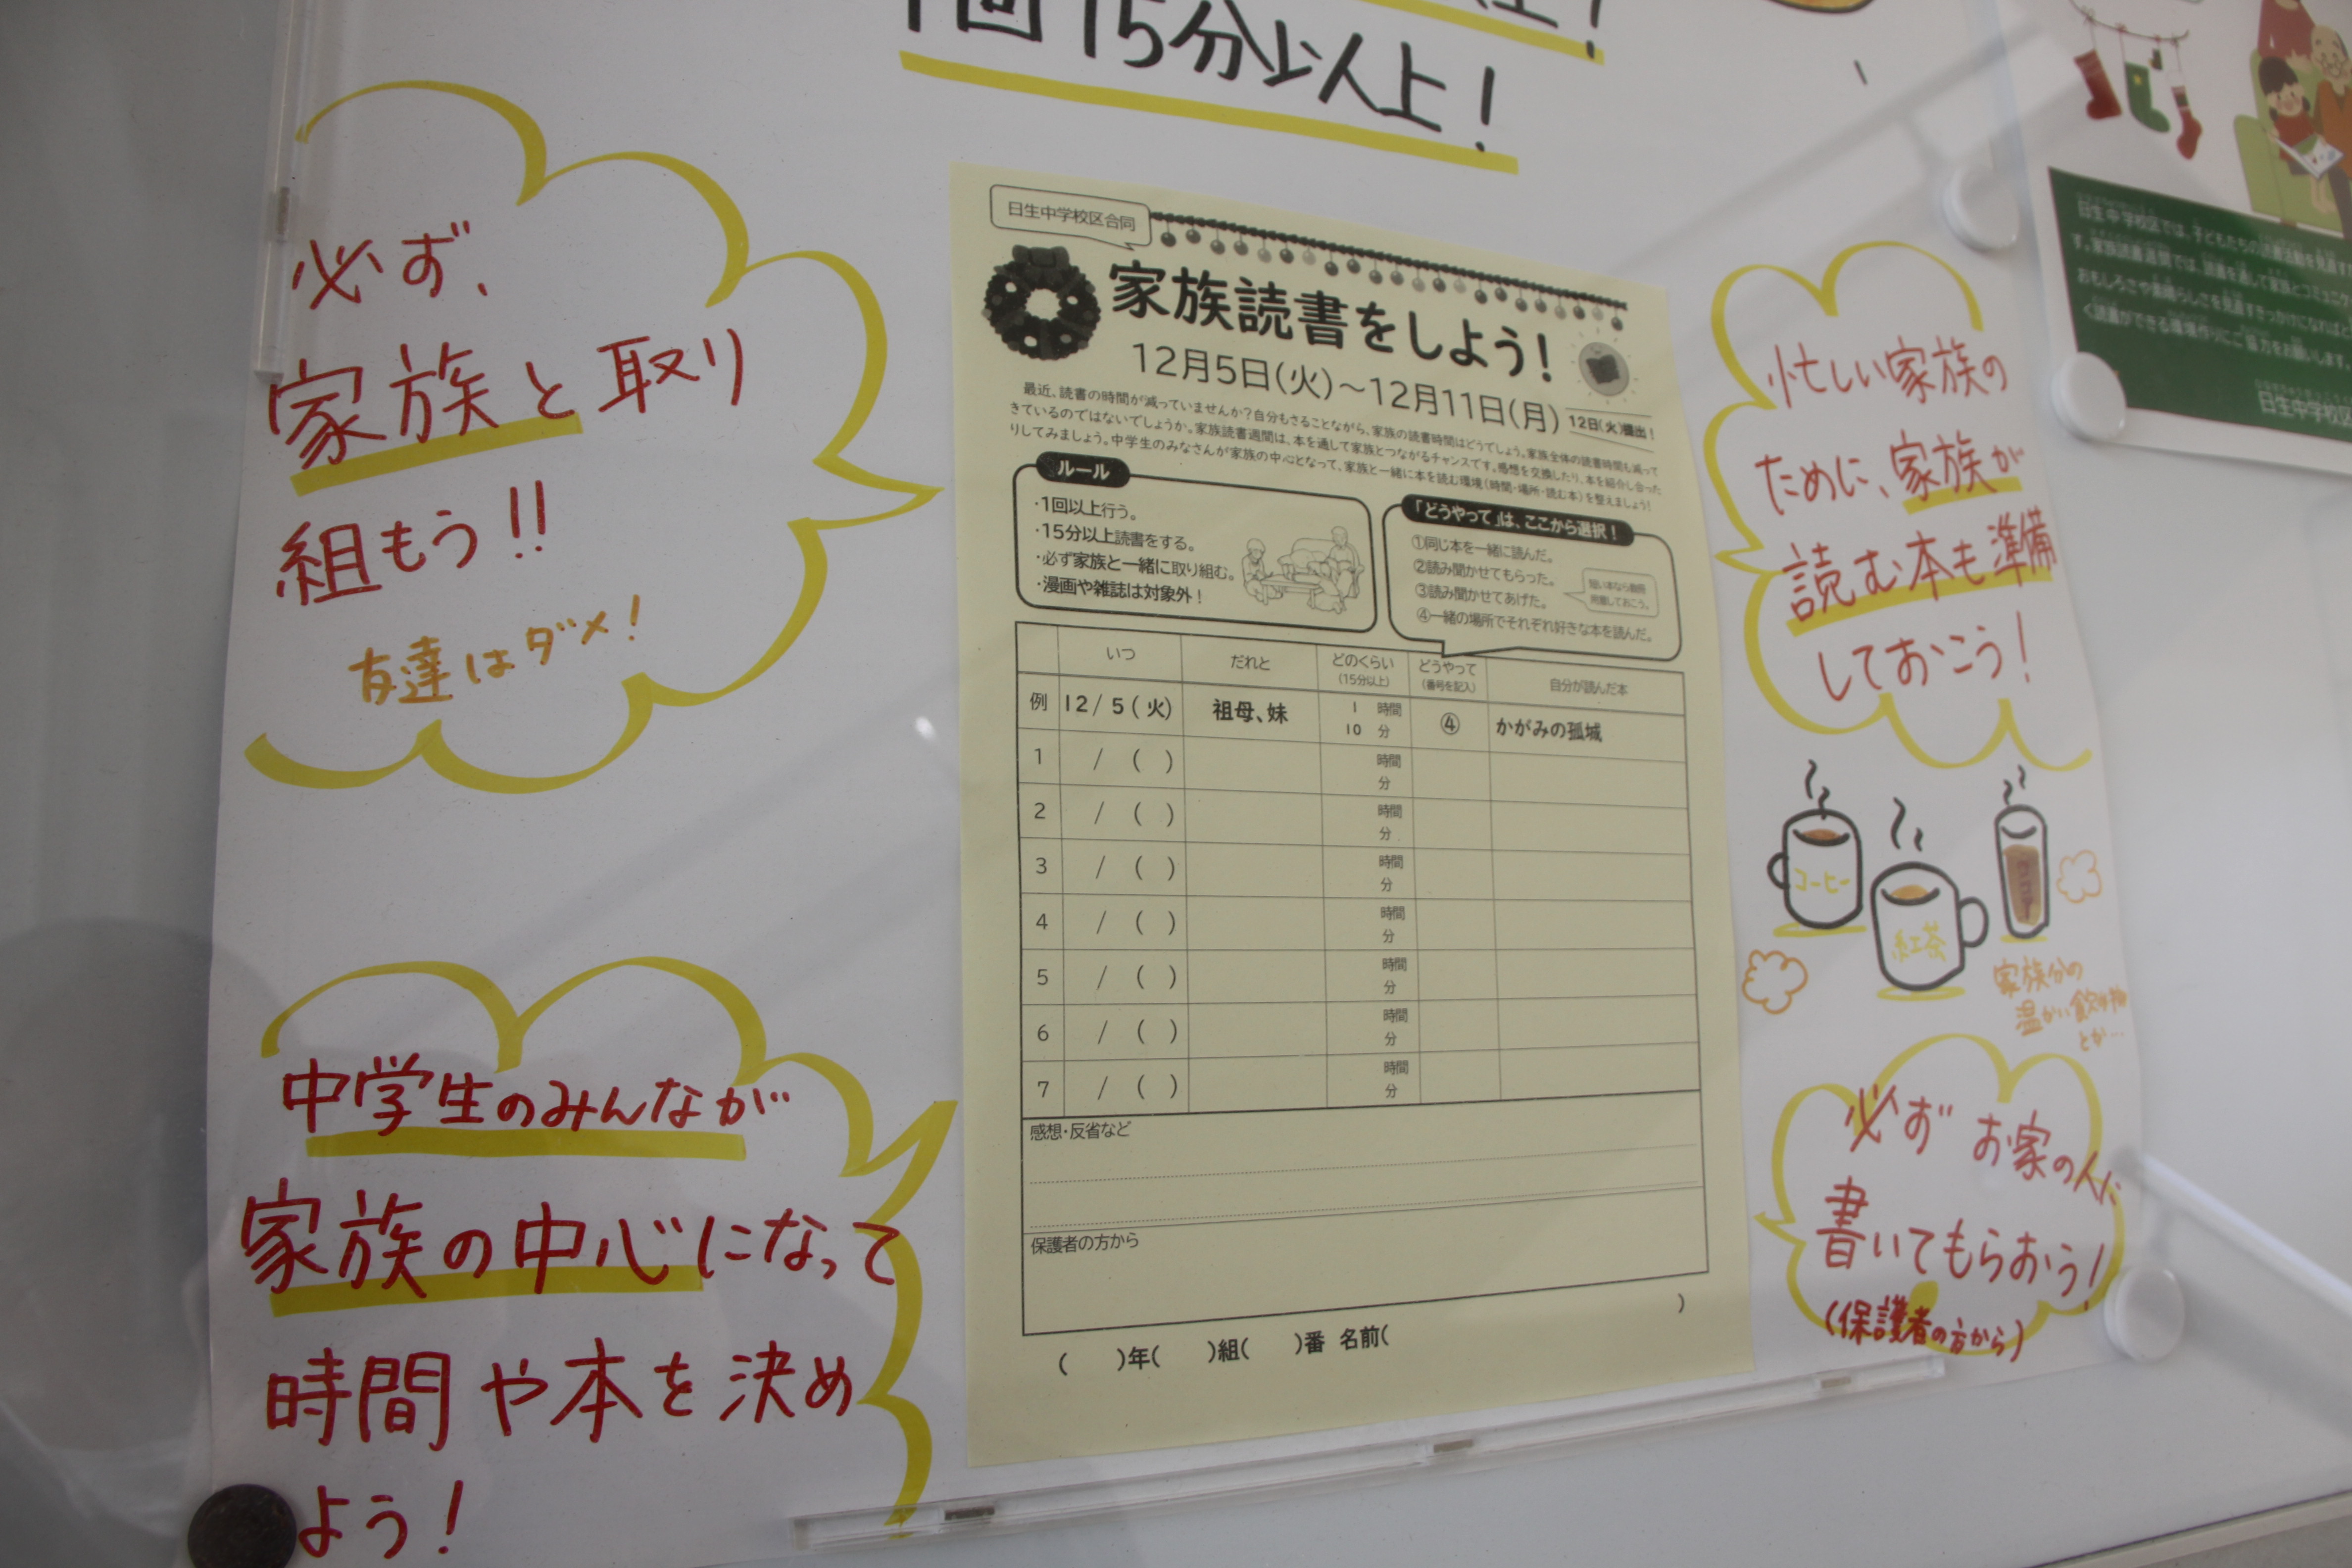 1回15分以上！
必ず、
家族と取り
組もう!!
友達はダメ！
中学生のみんなが
家族の中心になって
時間や本を決め
よう！
日生中学校区合同
家族読書をしよう！
12月5日(火)～12月11日(月)
12日(火)提出！
最近、読書の時間が減っていませんか？自分もさることながら、家族の読書時間はどうでしょう。家族全体の読書時間も減って
きているのではないでしょうか。家族読書週間は、本を通して家族とつながるチャンスです。感想を交換したり、本を紹介し合った
りしてみましょう。中学生のみなさんが家族の中心となって、家族と一緒に本を読む環境（時間・場所・読む本）を整えましょう！
ルール
・1回以上行う。
・15分以上読書をする。
・必ず家族と一緒に取り組む。
・漫画や雑誌は対象外！
「どうやって」は、ここから選択！
①同じ本を一緒に読んだ。
②読み聞かせてもらった。
③読み聞かせてあげた。
④一緒の場所でそれぞれ好きな本を読んだ。
いつ だれと どのくらい (15分以上) どうやって (番号を記入) 自分が読んだ本
例 12/5(火) 祖母、妹 1時間10分 ④ かがみの孤城
1 /( ) 時間 分
2 /( ) 時間 分
3 /( ) 時間 分
4 /( ) 時間 分
5 /( ) 時間 分
6 /( ) 時間 分
7 /( ) 時間 分
感想・反省など
保護者の方から
( )年( )組( )番 名前( )
忙しい家族の
ために、家族が
読む本も準備
しておこう！
コーヒー
紅茶
ココア
家族分の
温かい飲み物
とか…
必ずお家の人に
書いてもらおう！
(保護者の方から)
日生中学校区では、子どもたちの読書活動を見直す
す。家族読書週間では、読書を通して家族とコミュニ
おもしろさや素晴らしさを見直すきっかけになればと
く読書ができる環境作りにご協力をお願いします。
日生中学校区